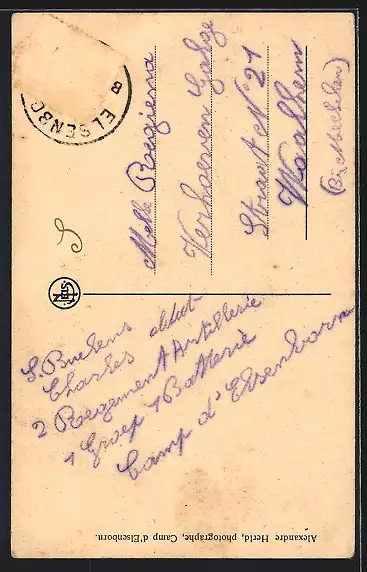 ELSENBO
B
Melle Regiena
Verhaeven Galge
Straat N 21
Waalhem
(Bij Mechelen)
S
NELS
S. Buelens
Charles
2 Regement Artillerie
1 Groep 1 Batterie
Camp d'Elsenborn
Alexandre Herid, photographe, Camp d'Elsenborn.